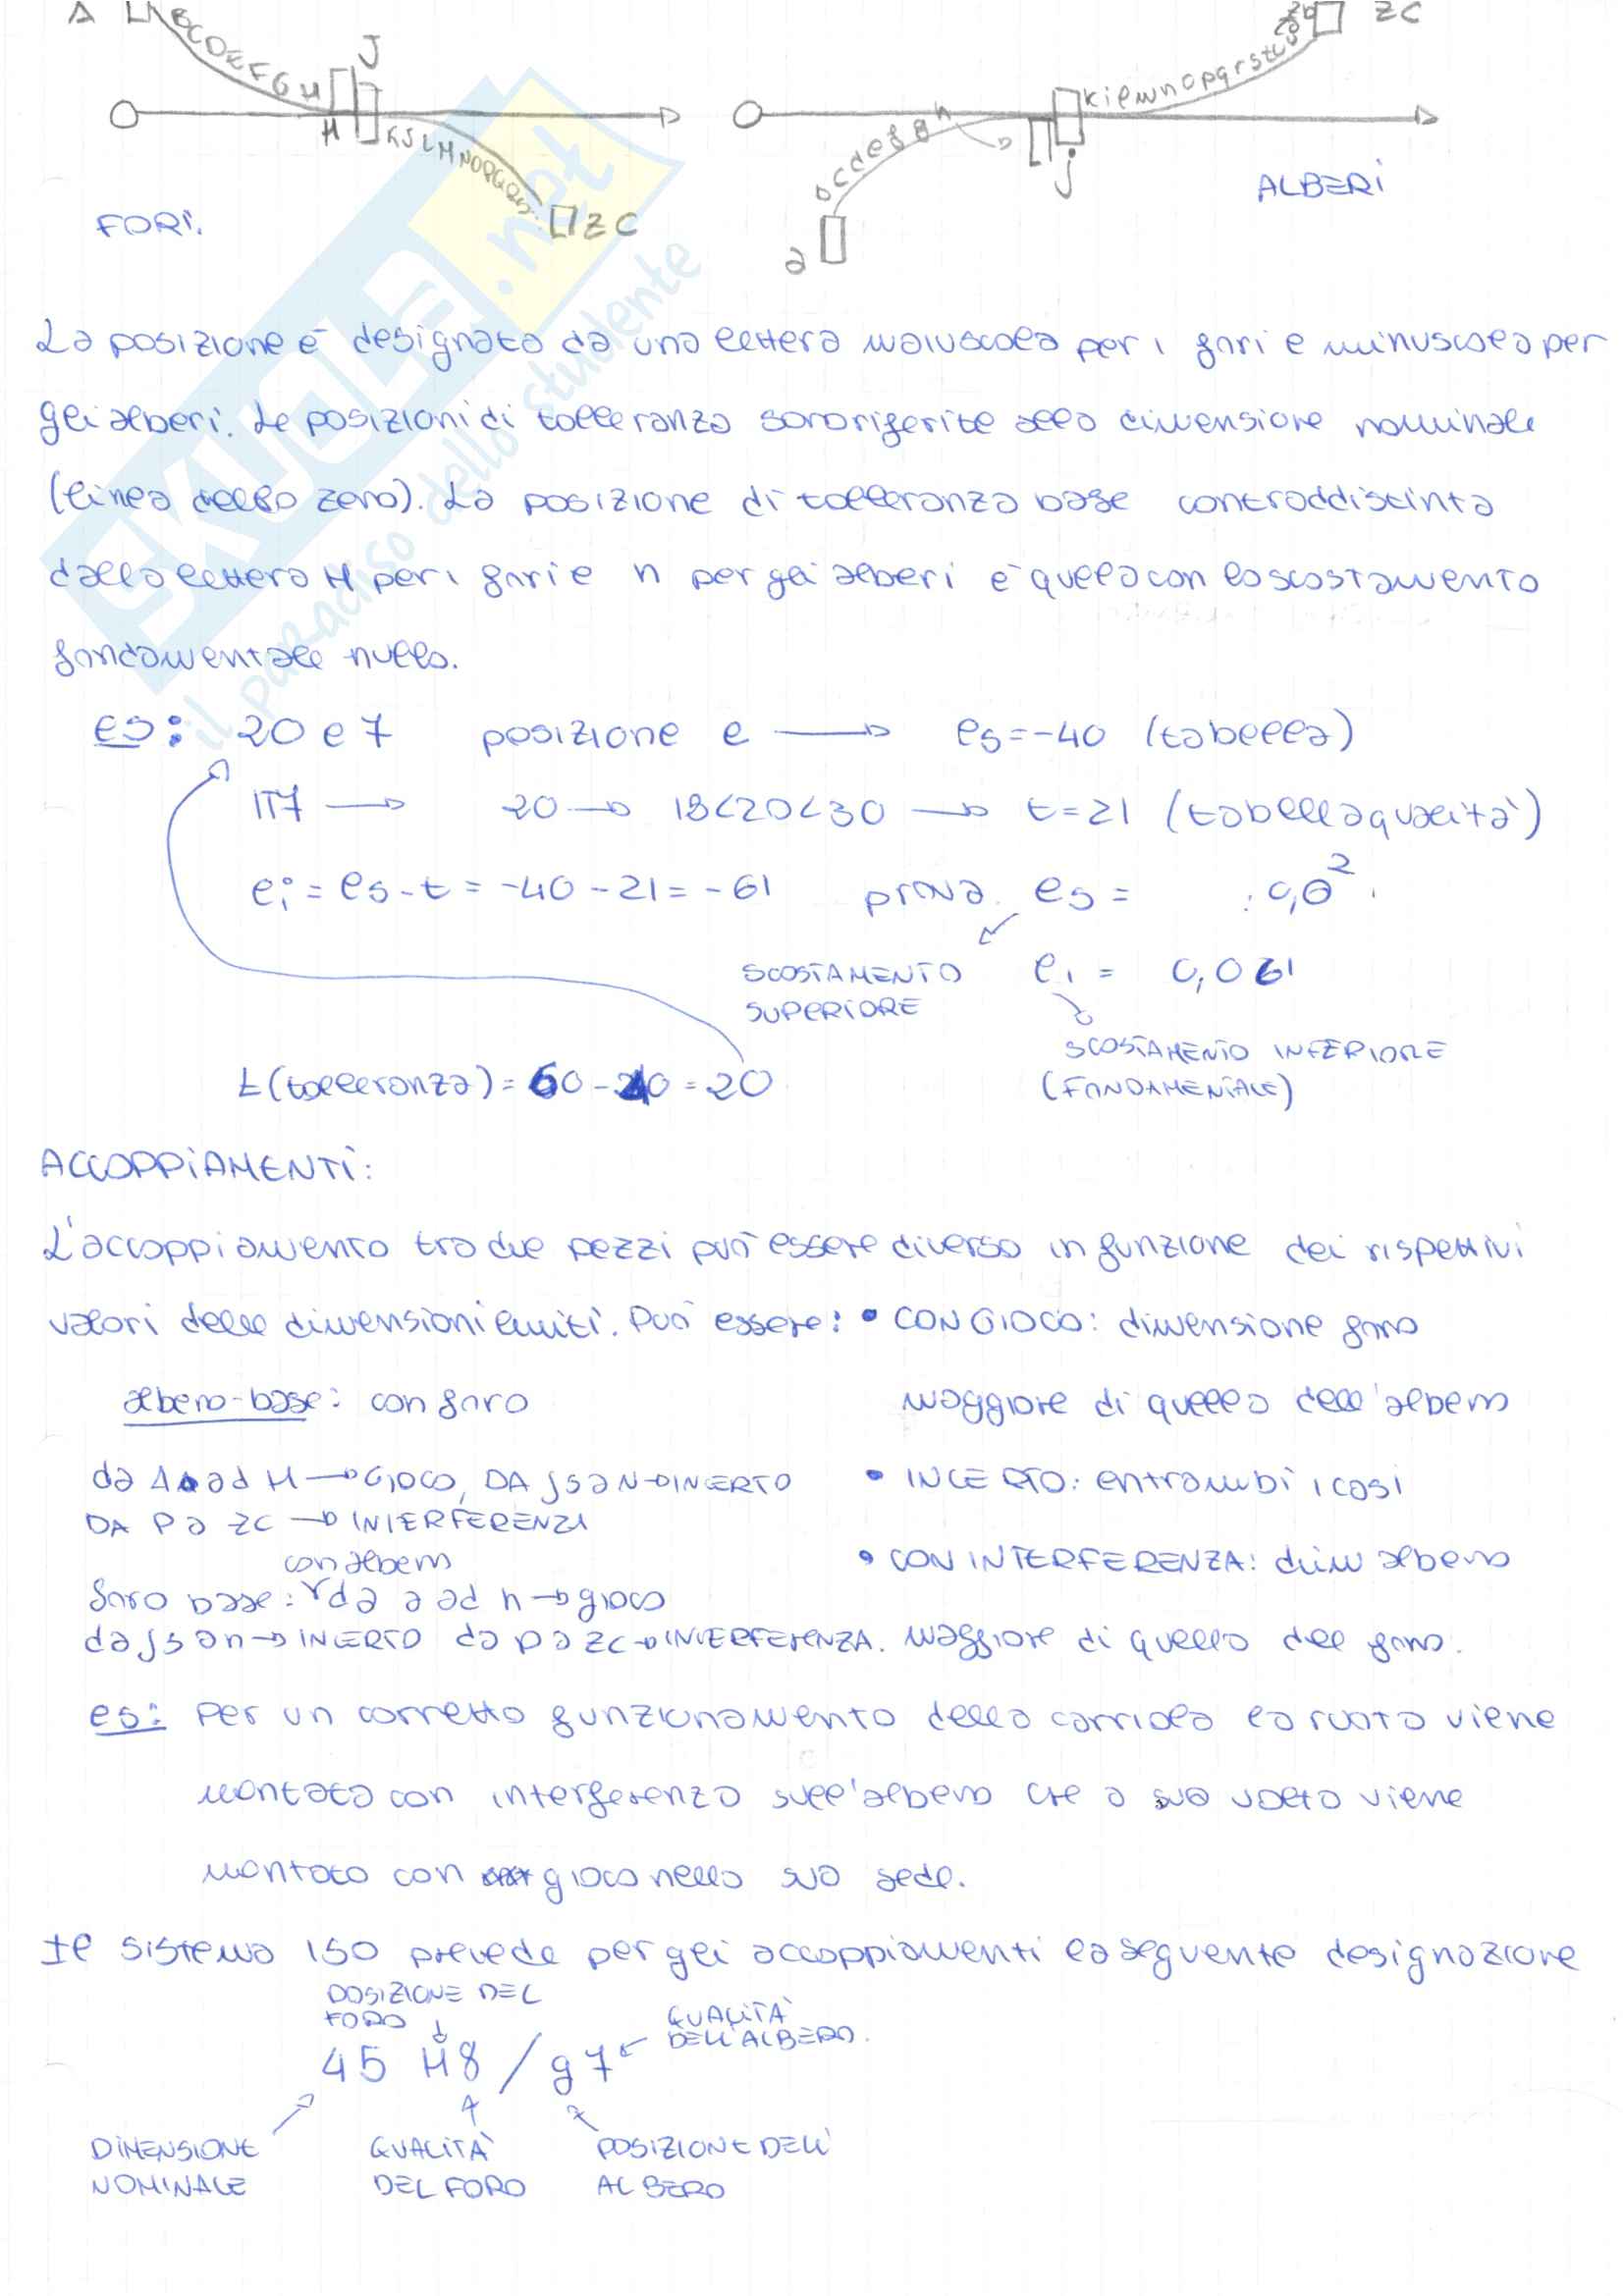 A BCDEFGH J
H KJLMNOPQRS ZC
FORI.
a bcdefgh j
klmnopqrstu ZC
ALBERI
La posizione è designata da una lettera maiuscola per i fori e minuscola per
gli alberi. Le posizioni di tolleranza sono riferite alla dimensione nominale
(linea dello zero). La posizione di tolleranza base contraddistinta
dalla lettera H per i fori e h per gli alberi è quella con lo scostamento
fondamentale nullo.
es: 20 e 7 posizione e → es=-40 (tabella)
IT7 → 20 → 18<20<30 → t=21 (tabella qualità)
ei = es-t = -40-21 = -61 prova es =
ei = 0,061
SCOSTAMENTO
SUPERIORE
SCOSTAMENTO INFERIORE
(FONDAMENTALE)
t(tolleranza) = 60-40 = 20
ACCOPPIAMENTI:
L'accoppiamento tra due pezzi può essere diverso in funzione dei rispettivi
valori delle dimensioni limiti. Può essere: • CON GIOCO: dimensione foro
maggiore di quella dell'albero
albero-base: con foro
da A ad H → GIOCO, DA JS a N → INCERTO
DA P a ZC → INTERFERENZA
• INCERTO: entrambi i casi
• CON INTERFERENZA: dim albero
maggiore di quello del foro.
con albero
foro base: da a ad h → gioco
da js a n → INCERTO da p a ZC → INTERFERENZA.
es: Per un corretto funzionamento della carriola la ruota viene
montata con interferenza sull'albero che a sua volta viene
montato con gioco nella sua sede.
Il sistema ISO prevede per gli accoppiamenti la seguente designazione
POSIZIONE DEL
FORO
QUALITÀ
DELL'ALBERO.
45 H8 / g7
DIMENSIONE
NOMINALE
QUALITÀ
DEL FORO
POSIZIONE DELL'
ALBERO
SKUOLA.net
il paradiso dello studente